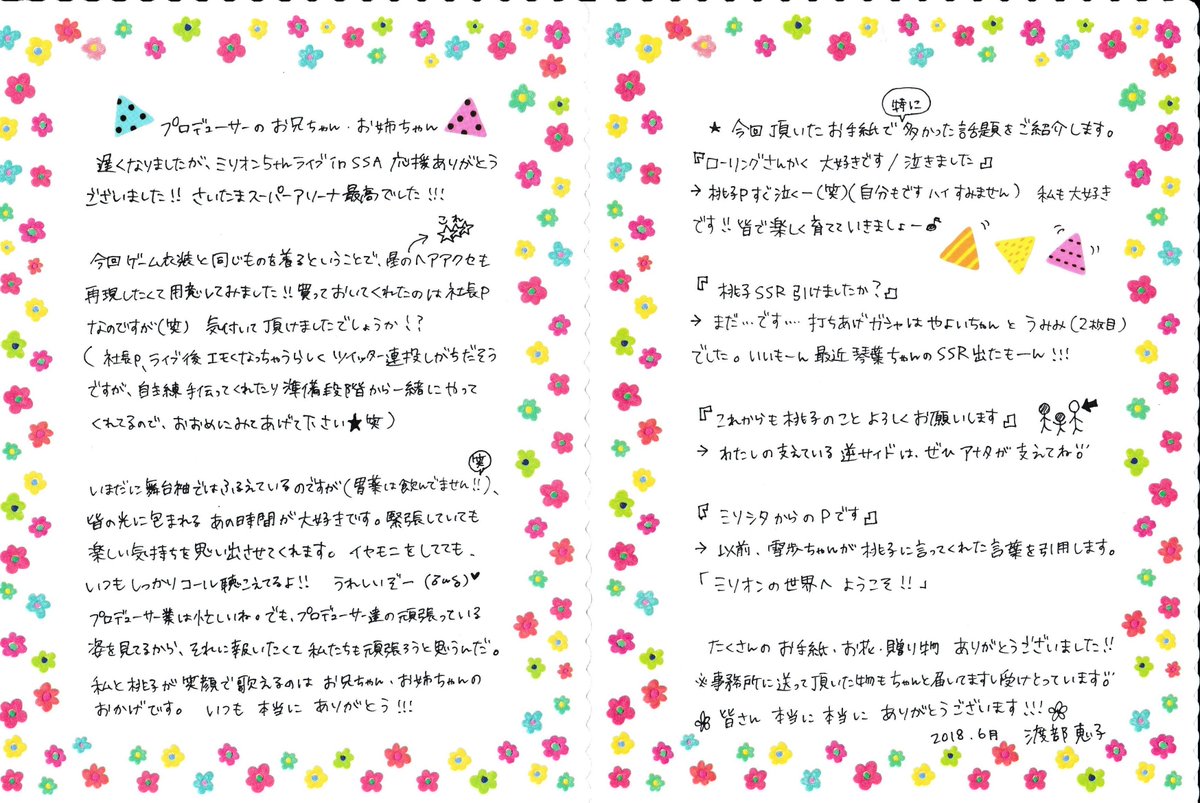 プロデューサーの お兄ちゃん・お姉ちゃん
遅くなりましたが、ミリオンちゃんライブ in SSA 応援ありがとう
ございました!! さいたまスーパーアリーナ最高でした!!!
これ
今回ゲーム衣装と同じものを着るということで、星のヘアアクセも
再現したくて用意してみました!! 買っておいてくれたのは社長P
なのですが(笑) 気付いて頂けましたでしょうか!?
( 社長P、ライブ後エモくなっちゃうらしくツイッター連投しがちだそう
ですが、自主練手伝ってくれたり準備段階から一緒にやって
くれてるので、おおめにみてあげて下さい★笑)
笑
いまだに舞台袖ではふるえているのですが(胃薬は飲んでません!!)、
皆の光に包まれる あの時間が大好きです。緊張していても
楽しい気持ちを思い出させてくれます。イヤモニをしてても、
いつもしっかりコール聴こえてるよ!! うれしいぞー (δωδ)♥
プロデューサー業は忙しいね。でも、プロデューサー達の頑張っている
姿を見てるから、それに報いたくて私たちも頑張ろうと思うんだ。
私と桃子が笑顔で歌えるのは お兄ちゃん・お姉ちゃんの
おかげです。 いつも 本当に ありがとう!!!
特に
★ 今回頂いたお手紙で多かった話題をご紹介します。
『ローリングさんかく 大好きです/泣きました』
→ 桃子Pすぐ泣くー(笑)(自分もです ハイ すみません) 私も大好き
です!! 皆で楽しく育てていきましょー♪
『 桃子SSR 引けましたか?』
→ まだ…です… 打ちあげガシャは やよいちゃん と うみみ(2枚目)
でした。いいもーん 最近 琴葉ちゃんのSSR出たもーん!!!
『これからも桃子のこと よろしくお願いします』
→ わたしの支えている 逆サイドは、ぜひ アナタが支えてね!!
『 ミリシタからのPです』
→ 以前、雪歩ちゃんが 桃子に言ってくれた言葉を引用します。
「ミリオンの世界へ ようこそ!!」
たくさんの お手紙、お花・贈り物 ありがとうございました!!
※事務所に送って頂いた物もちゃんと届いてますし受けとっています!!
皆さん 本当に本当に ありがとうございます!!!
2018.6月 渡部恵子